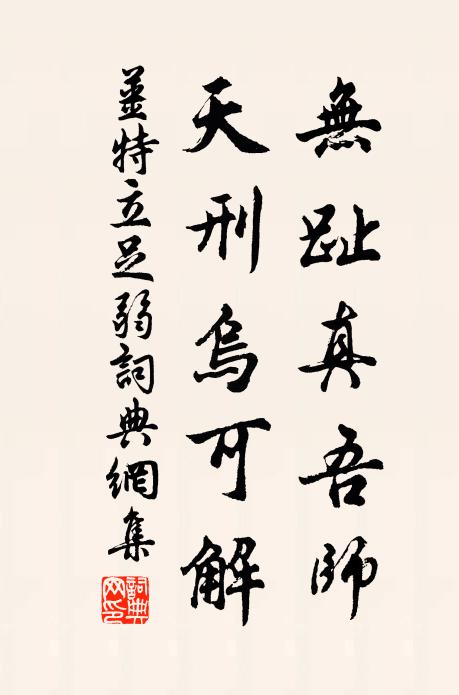 無趾真吾師
天刑烏可解
姜特立足弱詞典網集
詞典网印